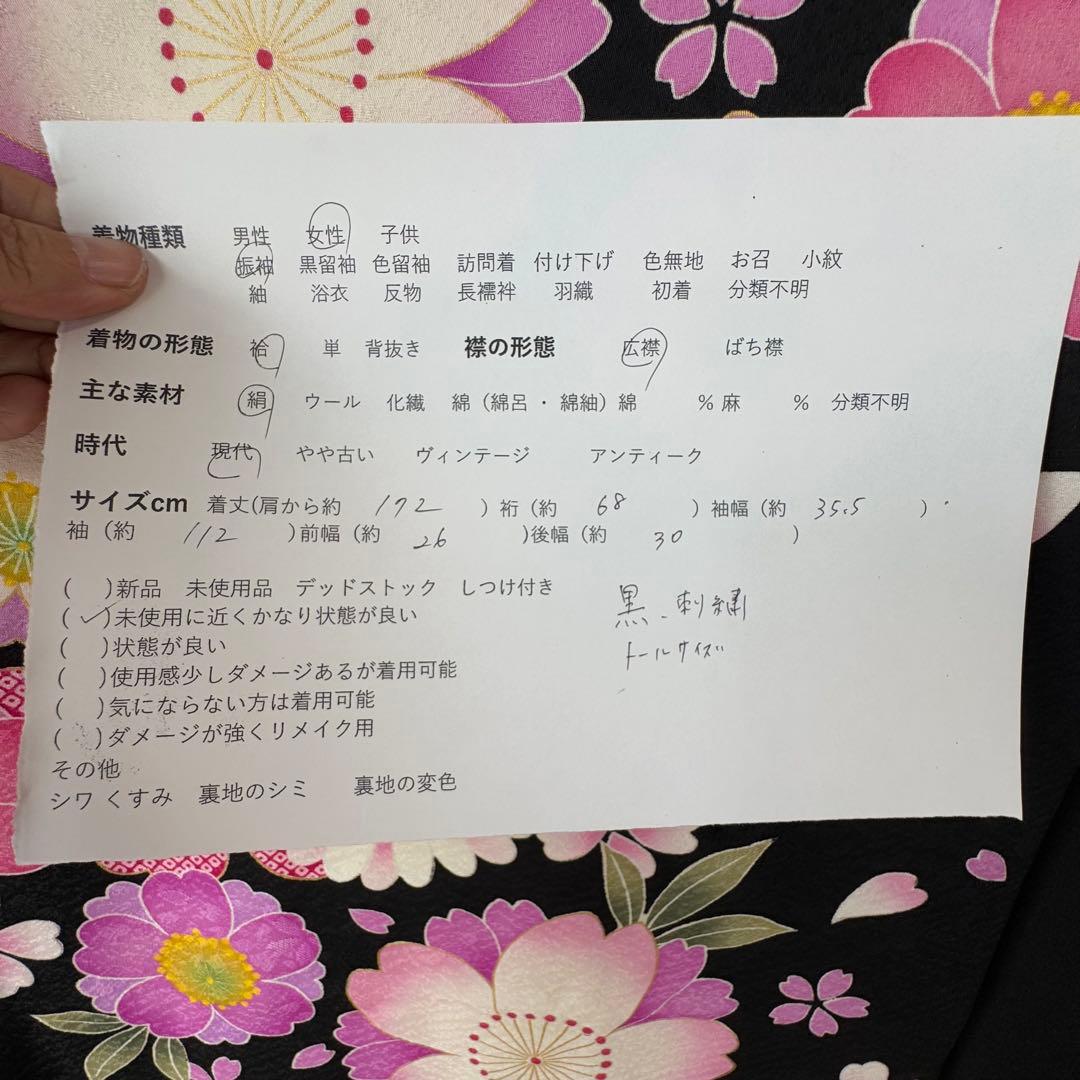 着物種類 男性 女性 子供
振袖 黒留袖 色留袖 訪問着 付け下げ 色無地 お召 小紋
紬 浴衣 反物 長襦袢 羽織 初着 分類不明
着物の形態 袷 単 背抜き 襟の形態 広襟 ばち襟
主な素材 絹 ウール 化繊 綿（綿呂・綿紬）綿 % 麻 % 分類不明
時代 現代 やや古い ヴィンテージ アンティーク
サイズcm 着丈(肩から約 172 ) 裄 (約 68 ) 袖幅 (約 35.5 )
袖 (約 112 )前幅 (約 26 )後幅 (約 30 )
( )新品 未使用品 デッドストック しつけ付き
(✓)未使用に近くかなり状態が良い
( )状態が良い
( )使用感少しダメージあるが着用可能
( )気にならない方は着用可能
( )ダメージが強くリメイク用
黒、刺繍
トールサイズ
その他
シワ くすみ 裏地のシミ 裏地の変色